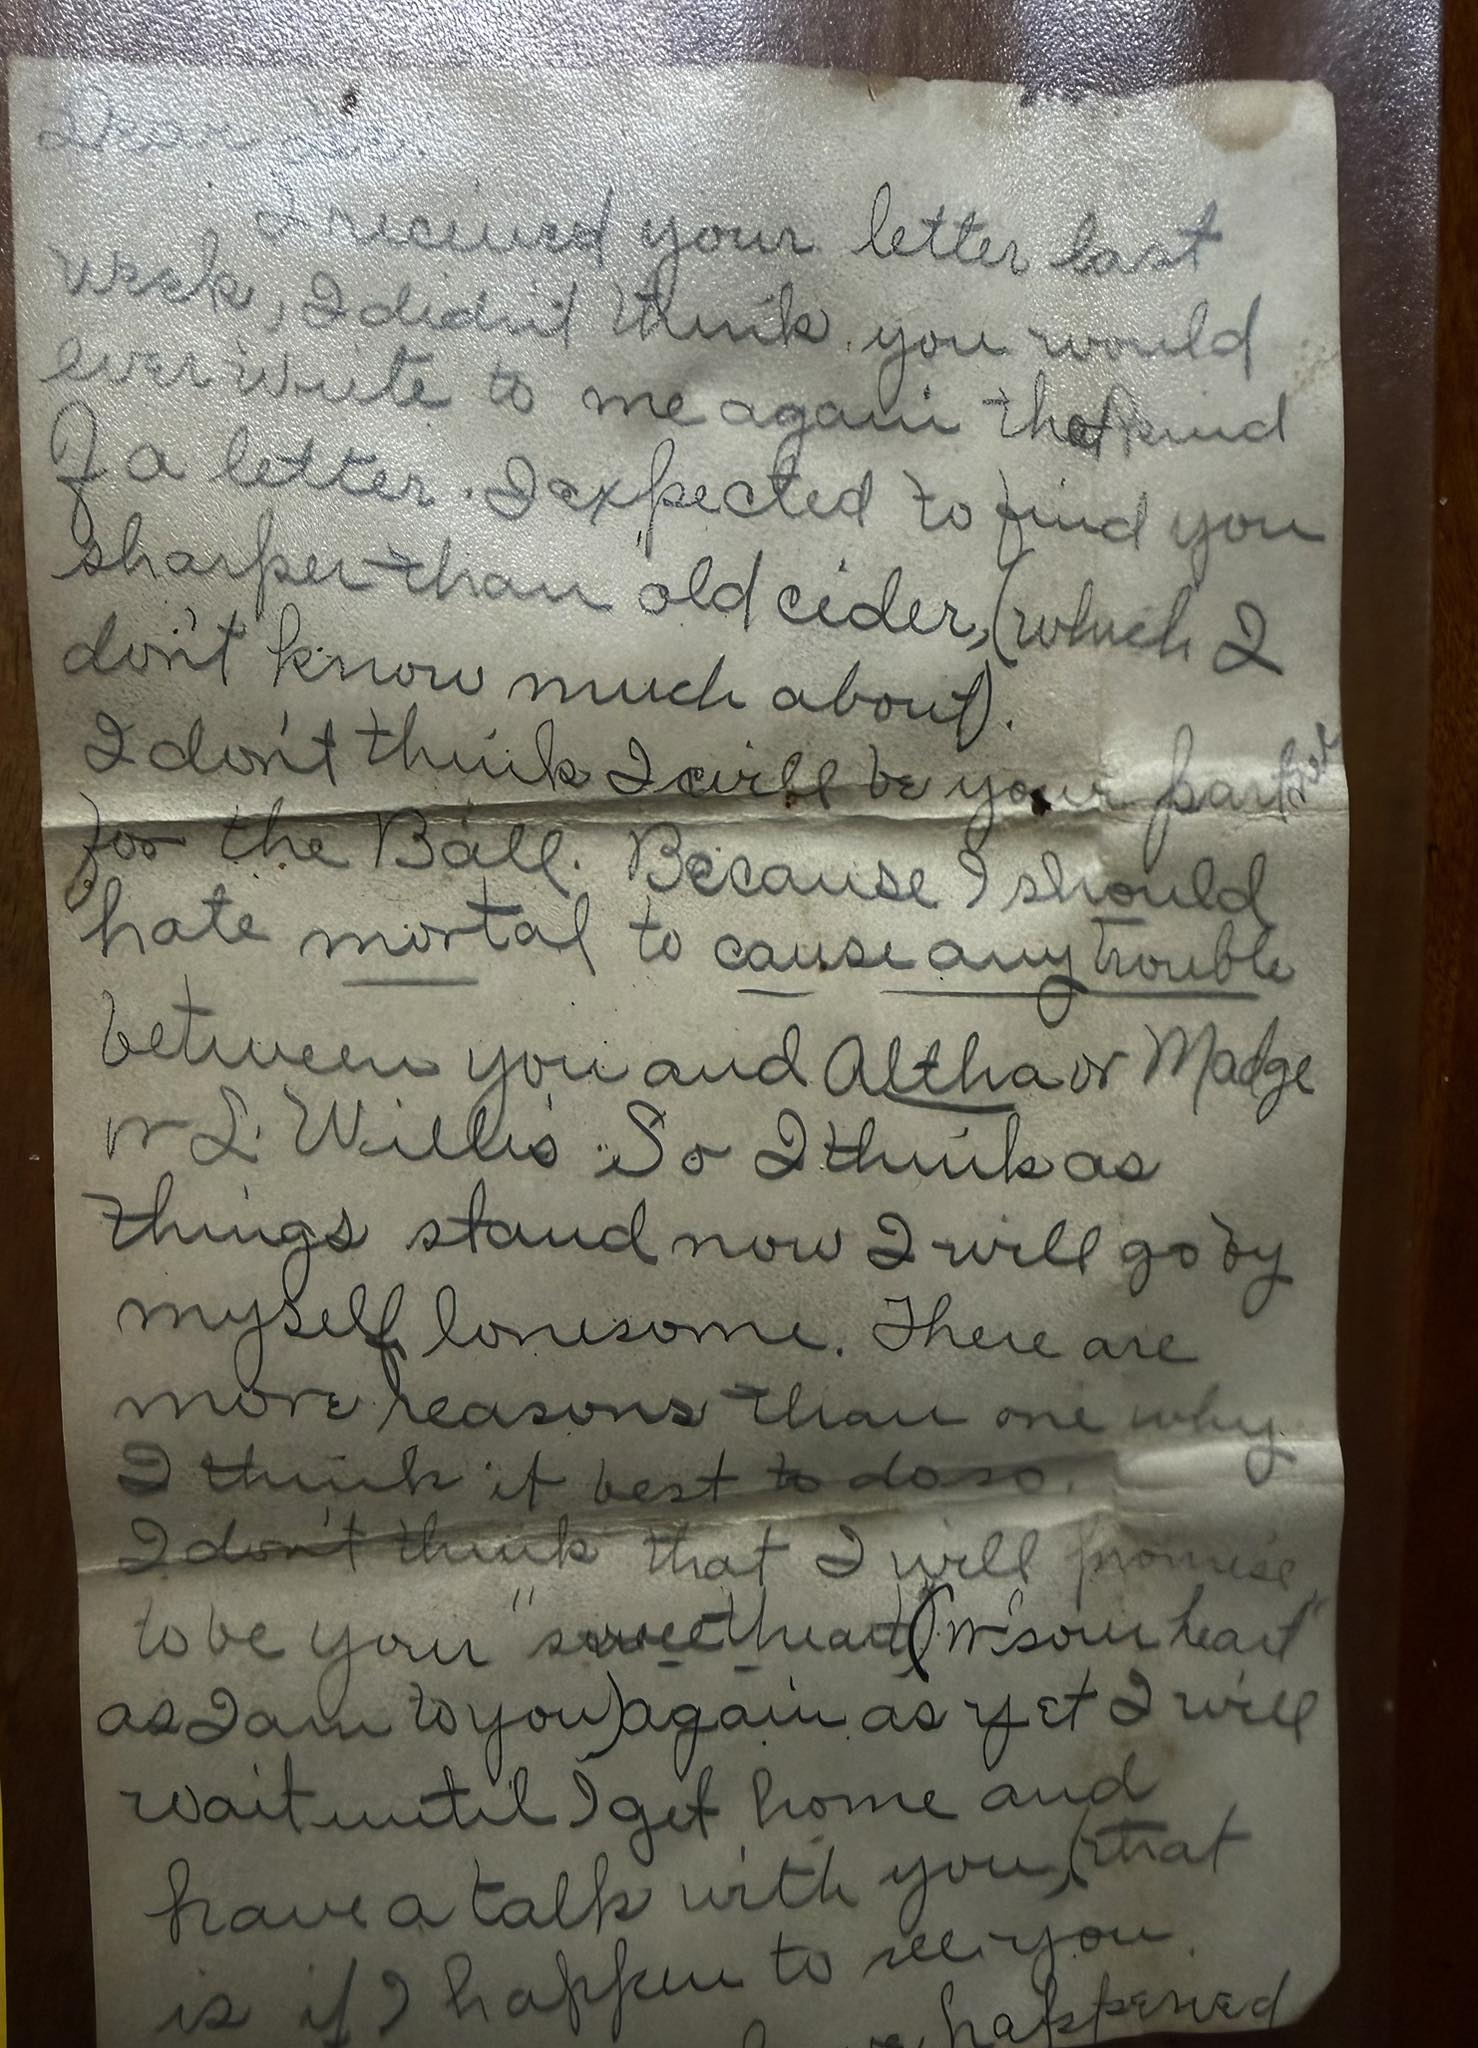 Dear Sir.
I received your letter last
week, I didn't think you would
ever write to me again that kind
of a letter. I expected to find you
sharper than old cider, (which I
don't know much about).
I don't think I will be your partner
for the Ball. Because I should
hate mortal to cause any trouble
between you and Altha or Madge
or L. Willis. So I think as
things stand now I will go by
myself lonesome. There are
more reasons than one why
I think it best to do so.
I don't think that I will promise
to be your "sweetheart (or "sour heart"
as I am to you) again as yet I will
wait until I get home and
have a talk with you, (that
is if I happen to see you
happened